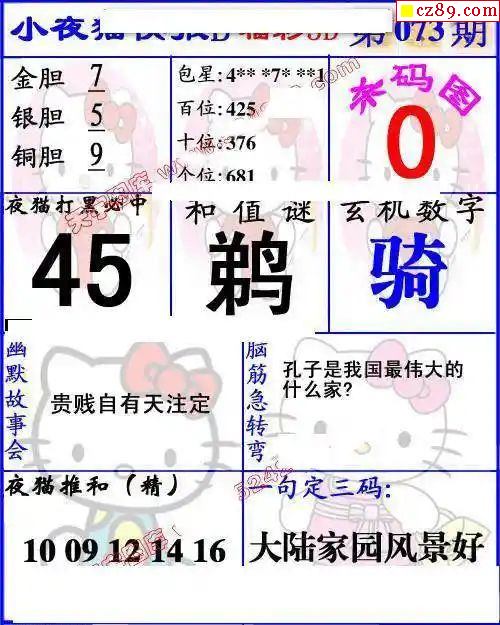 cz89.com
小夜猫快报D 福彩3D 第073期
金胆 7
银胆 5
铜胆 9
包星:4** *7* **1
百位:425
十位:376
个位:681
杀码图
0
夜猫打黑必中
45
和值谜
鹈
玄机数字
骑
幽默故事会
贵贱自有天注定
脑筋急转弯
孔子是我国最伟大的
什么家?
夜猫推和(精)
10 09 12 14 16
一句定三码:
大陆家园风景好